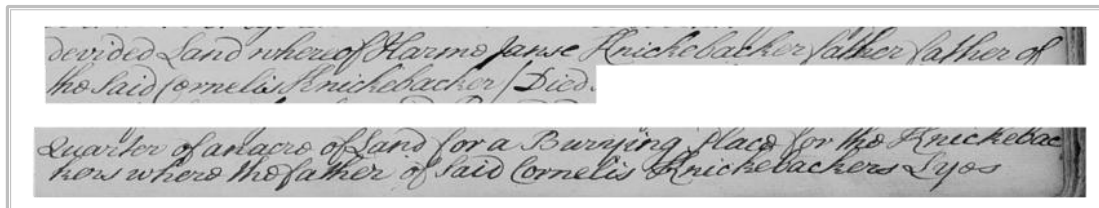 devided Land whereof Harme Janse Knickebacker father father of
the said Cornelis Knickebacker / Died.
Quarter of an acre of Land for a Burrying place for the Knickebac
kers where the father of said Cornelis Knickebackers Lyes